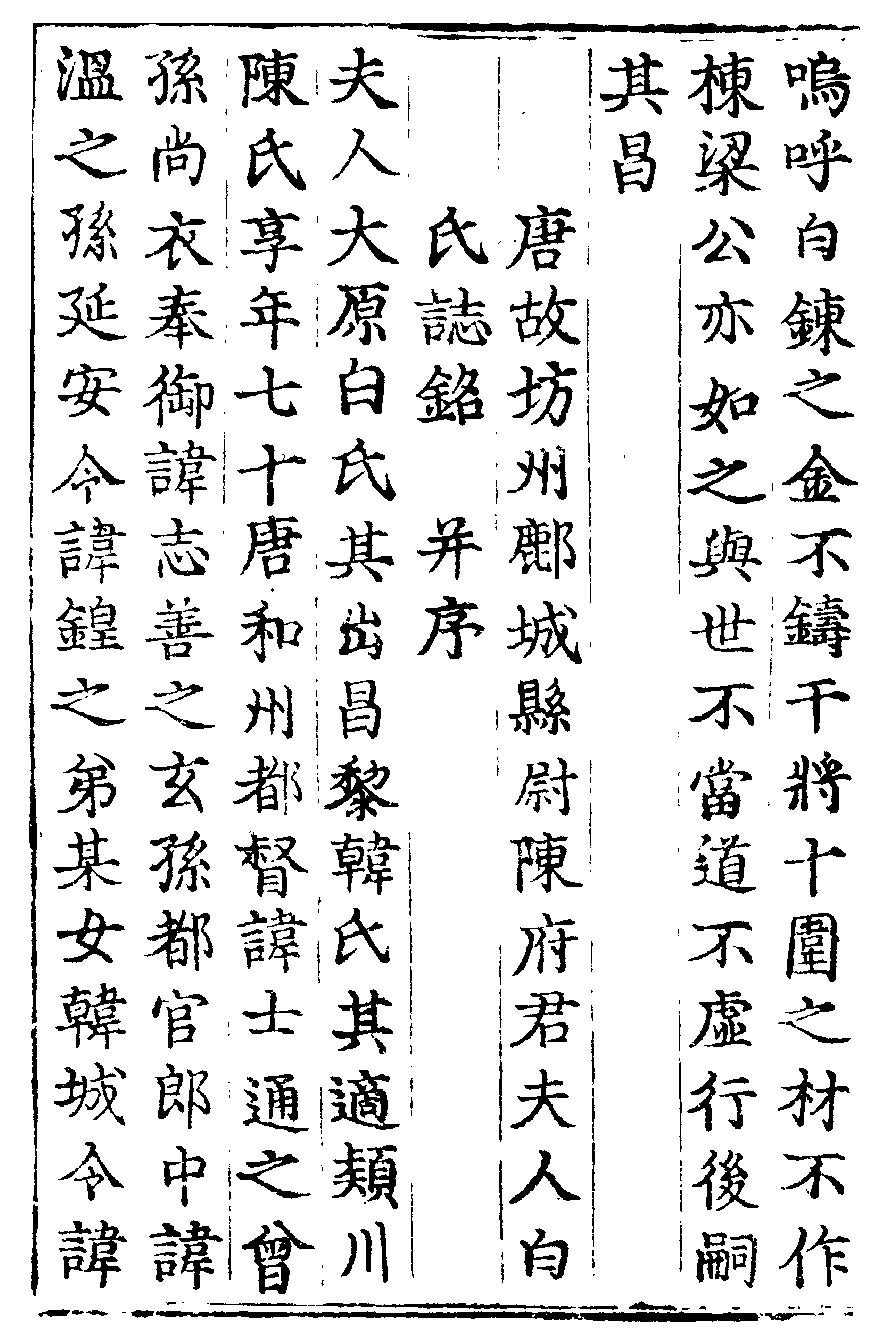 嗚呼白鍊之金不鑄干將十圍之材不作
棟梁公亦如之與世不當道不虛行後嗣
其昌
唐故坊州鄜城縣尉陳府君夫人白
氏誌銘　并序
夫人大原白氏其出昌黎韓氏其適頴川
陳氏享年七十唐和州都督諱士通之曾
孫尚衣奉御諱志善之玄孫都官郎中諱
溫之孫延安令諱鍠之弟某女韓城令諱